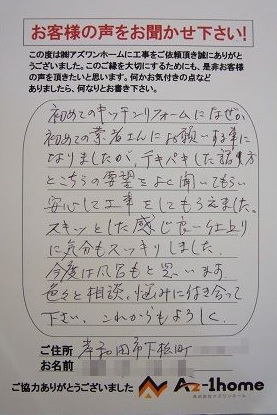 お客様の声をお聞かせ下さい!
この度は㈱アズワンホームに工事をご依頼頂き誠にありが
とうございました。このご縁を大切にするためにも、是非お客様
の声を頂きたいと思います。何かお気付きの点など
ありましたら、何なりとお書き下さい。
初めてのキッチンリフォームになぜか
初めての業者さんにお願いする事に
なりましたが、テキパキした話し方
とこちらの要望をよく聞いてもらい
安心して工事をしてもらえました。
スキッとした感じ良い仕上り
に気分もスッキリしました。
今度は風呂もと思います
色々と相談、悩みに付き合って
下さい。これからもよろしく
ご住所 岸和田市下松町
お名前
ご協力ありがとうございました Az-1home
株式会社アズワンホーム